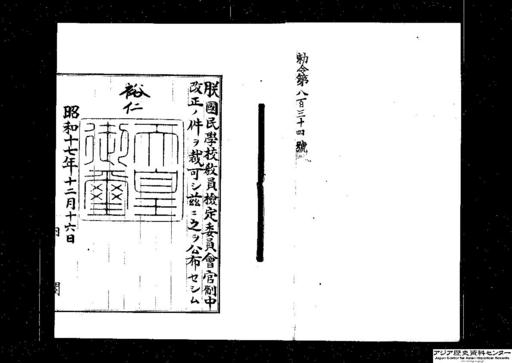 勅令第八百三十四號
朕國民學校教員檢定委員會官制中
改正ノ件ヲ裁可シ茲ニ之ヲ公布セシム
裕仁
天皇御璽
昭和十七年十二月十六日
内閣
アジア歴史資料センター
Japan Center for Asian Historical Records